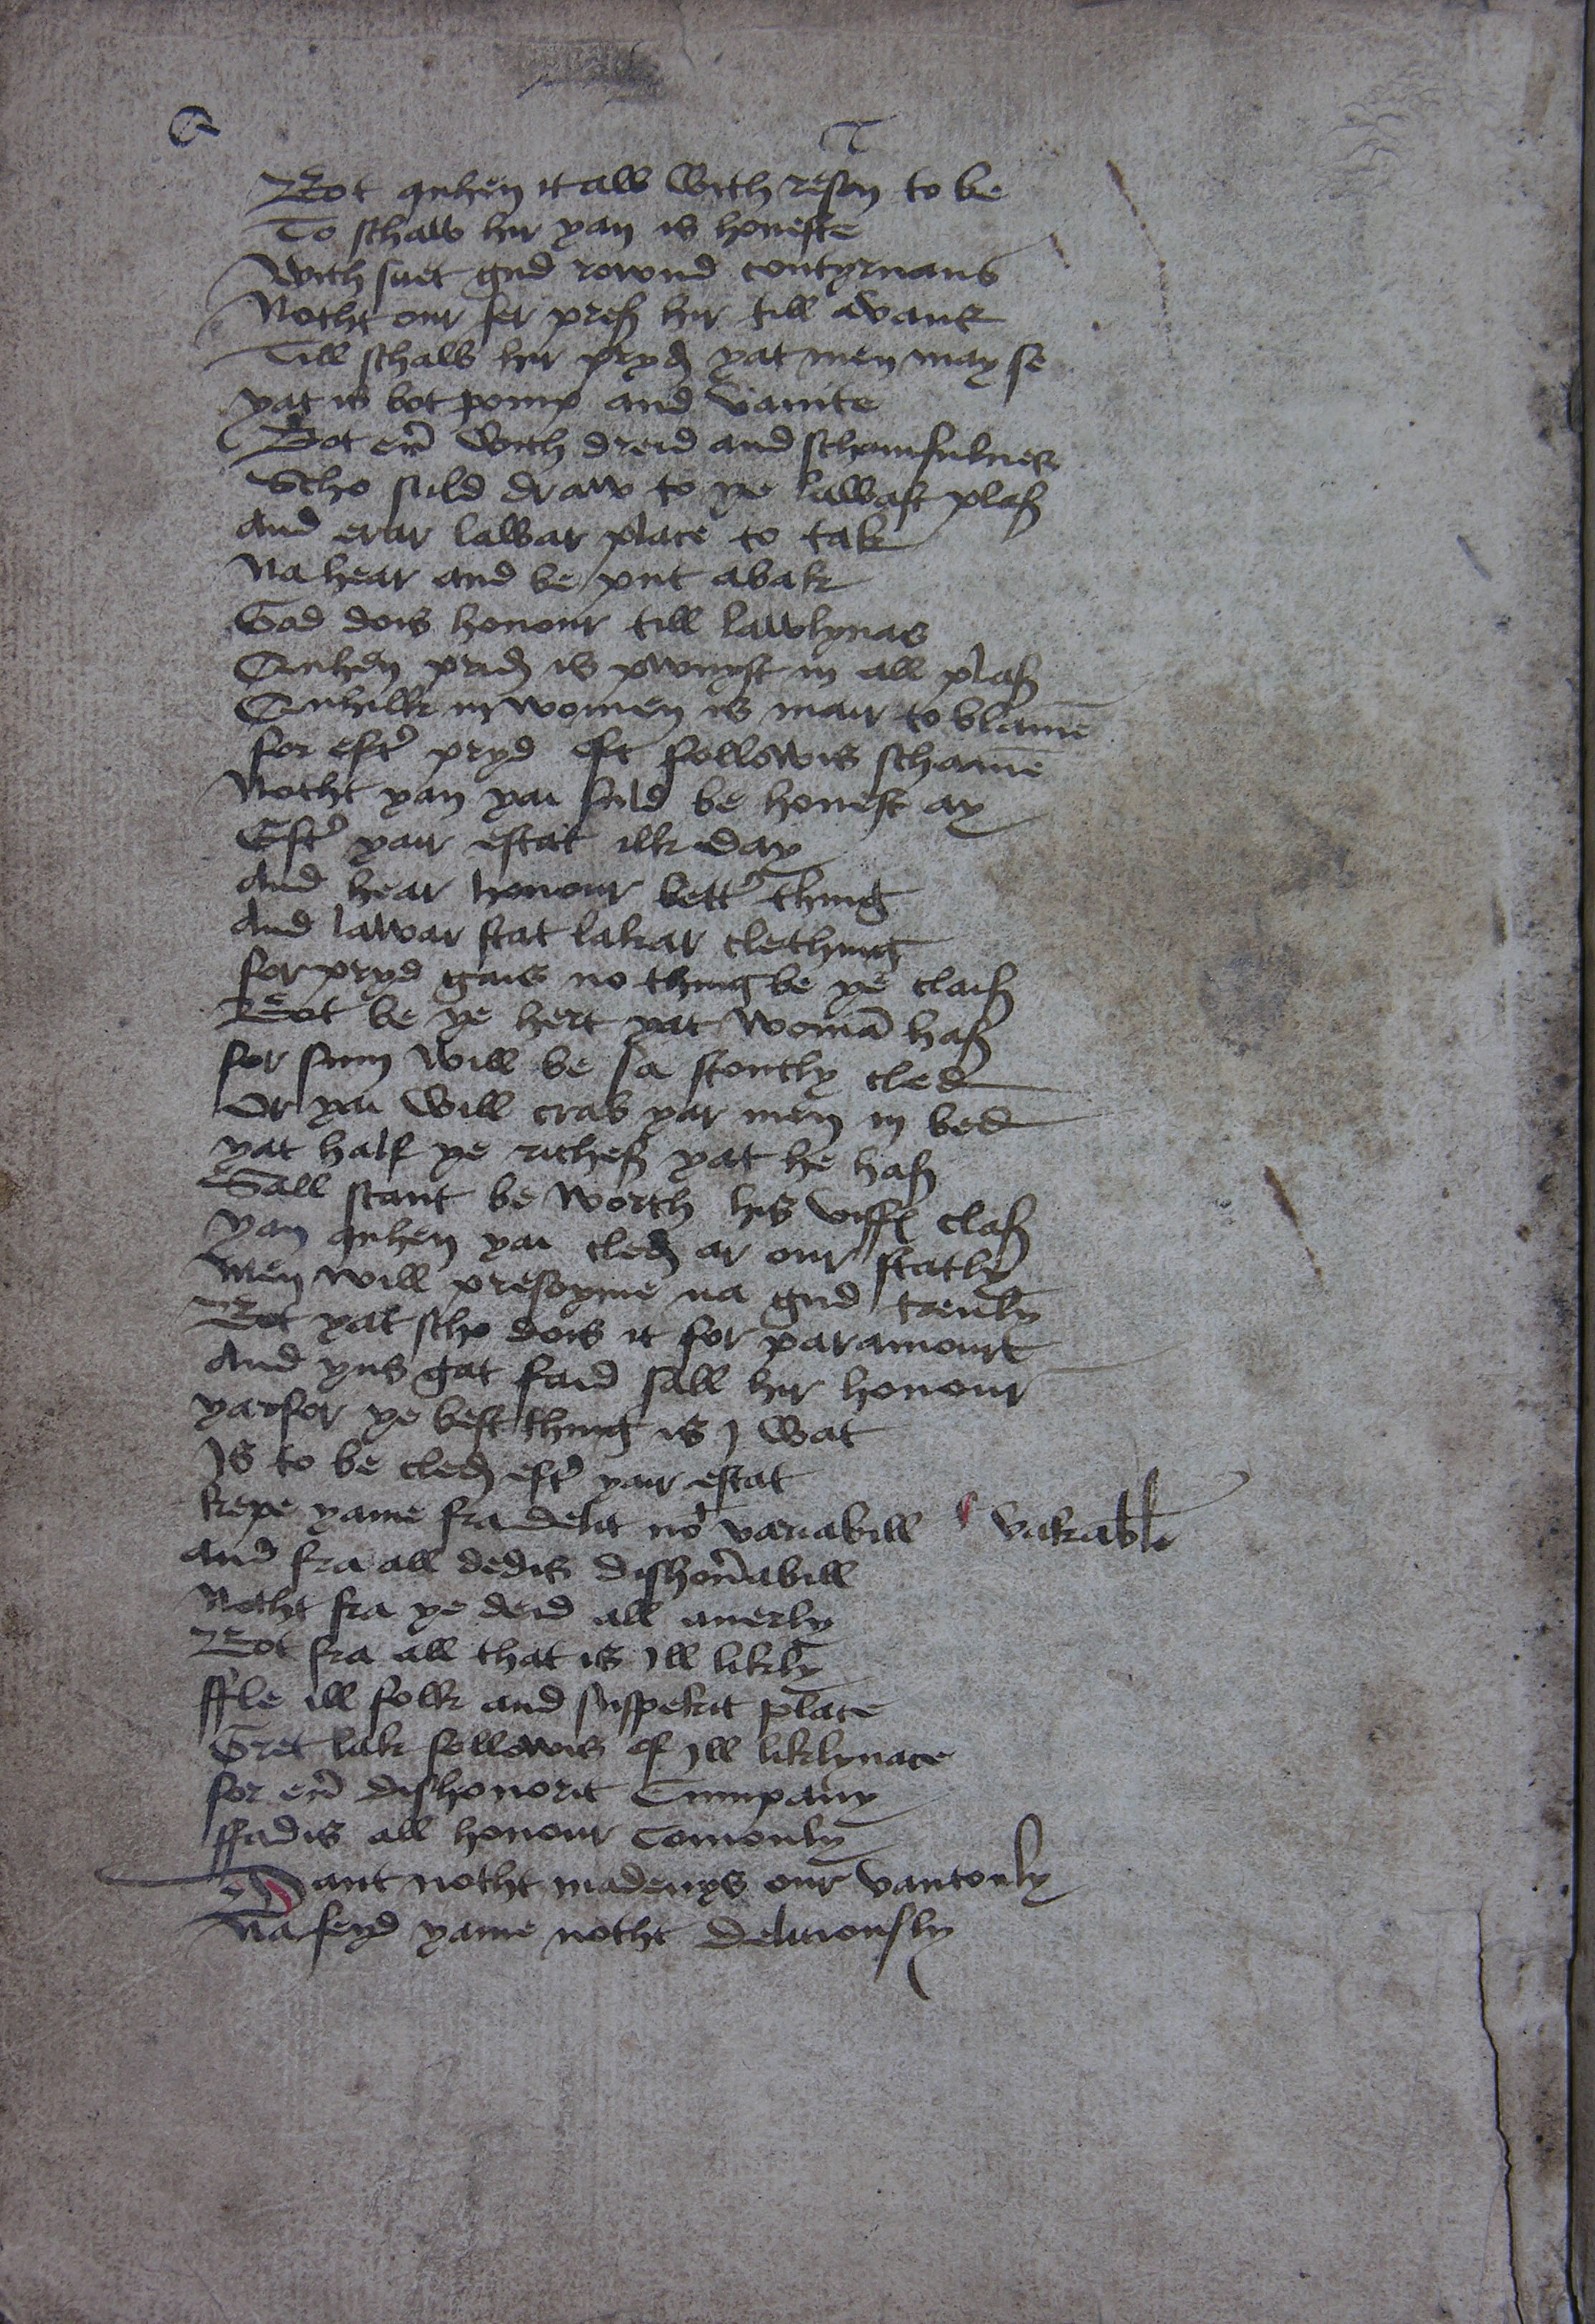 Bot quhen it aw with resoun to be
To schaw hir yan is honeste
With suet gud rownd contynans
Notht our fer preß hir till avans
Till schaw hir pryd yat men may se
yat is bot pomp and vanite
Bot eũ with dreid and schamfulnes
Scho suld draw to ye lawast plaß
And erar lawar place to tak
Na hear and be put abak
God dois honour till lawlynas
Quhen prid is pwnyst in all plaß
Quhilk in women is mair to blame
for eft' pryd oft followis schame
Notht yan yai suld be honest ay
Eft' yair estat ilk day
And hear honour bett' thing
And lawar stat lakar clething
for pryd gais no thing be ye claiß
Bot be ye hert yat womã haß
for sum will be sa stoutly cled
Or yai will crab yar men in bed
yat half ye richeß yat he haß
Sall scant be worth his viffis claß
yan quhen yai cled ar our statly
Men will presoyme na gud trewly
Bot yat scho dois it for paramouris
And yus gat faid sall hir honour
yarfor ye best thing is I wat
Is to be cled eft' yair estat
kepe yame fra delit no' variabill vakrable
and fra all dedis dishonabill
Notht fra ye deid all anerly
Bot fra all that is Ill likly
ffle ill folk and suspekit place
Gret lak followis of Ill liklynace
for eũ dishonorit Cumpany
ffadis all honour Comonly
Dant notht madenys our vantonly
Na feyd yame notht deliciously